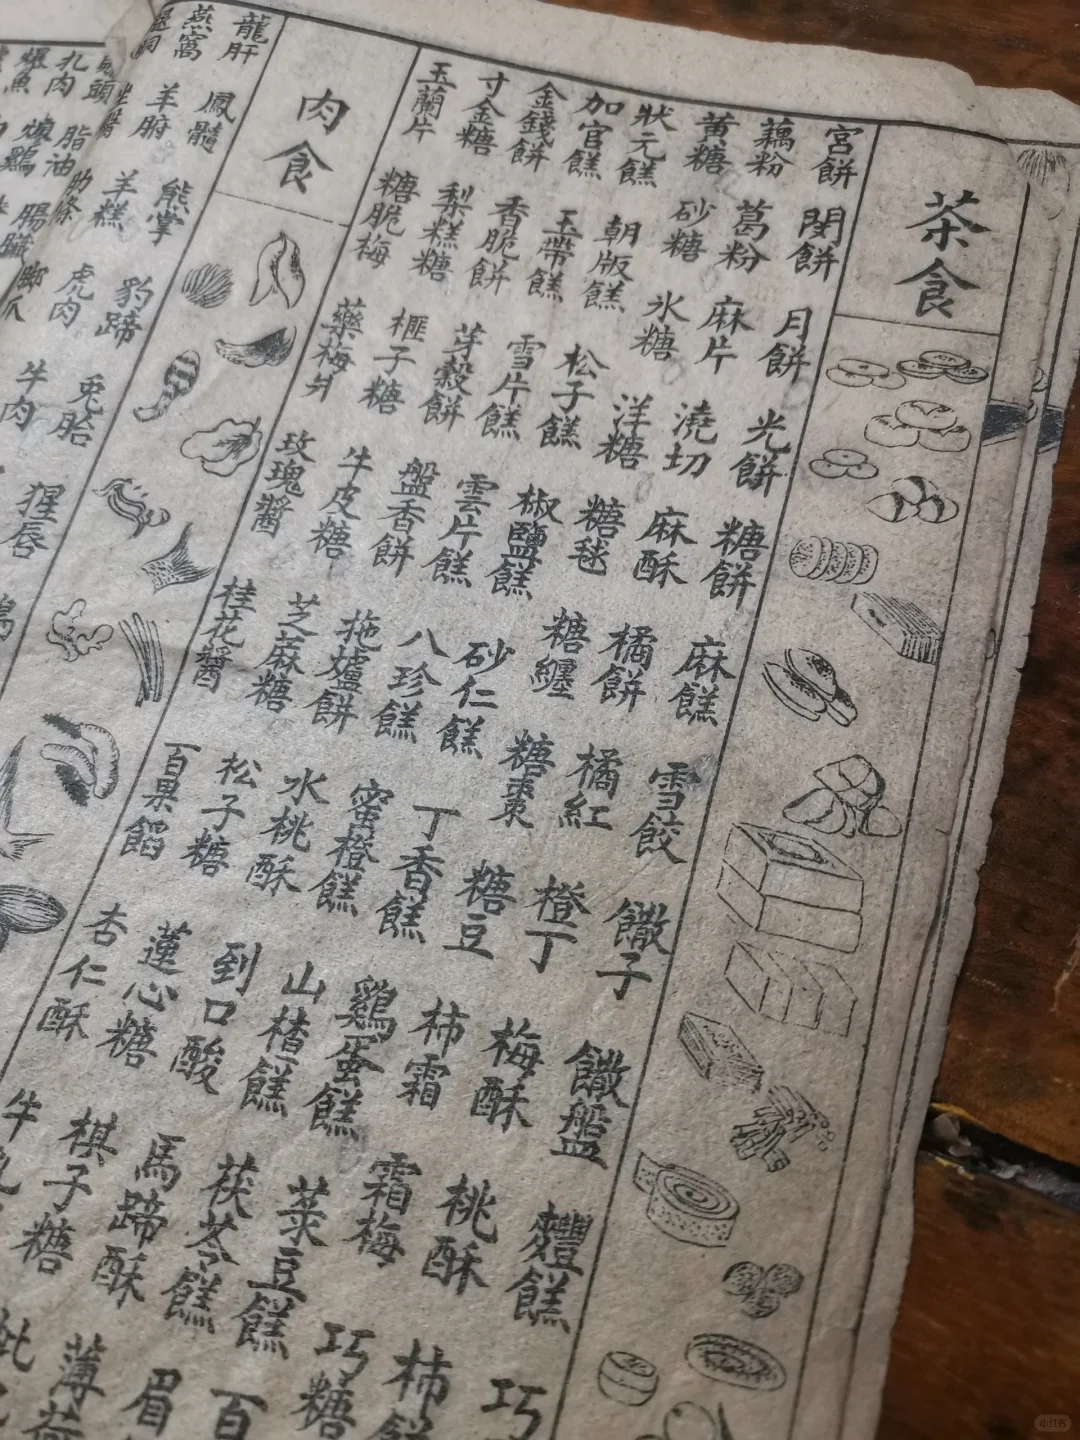 茶食
宮餅 閏餅 月餅 光餅 糖餅 麻糕 雪餃 饊子 饊盤 麷糕 巧
藕粉 葛粉 麻片 澆切 麻酥 橘餅 橘紅 橙丁 梅酥 桃酥 柿餅
黃糖 砂糖 氷糖 洋糖 糖毬 糖纏 糖棗 糖豆 柿霜 霜梅 巧糖
狀元糕 朝版糕 松子糕 椒鹽糕 砂仁糕 丁香糕 鷄蛋糕 菉豆糕 百
加官糕 玉帶糕 雪片糕 雲片糕 八珍糕 蜜橙糕 山楂糕 茯苓糕 眉
金錢餅 香脆餅 芽穀餅 盤香餅 拖爐餅 水桃酥 到口酸 馬蹄酥 薄荷
寸金糖 梨糕糖 榧子糖 牛皮糖 芝麻糖 松子糖 蓮心糖 棋子糖 枇
玉蘭片 糖脆梅 藥梅爿 玫瑰醬 桂花醬 百果餡 杏仁酥 牛乳
肉食
龍肝 鳳髓 熊掌 豹蹄 兎胎 猩唇
燕窩 羊腑 羊糕 虎肉 牛肉
脂油 肋條
扎肉 腸臟 脚爪
爆魚 爊鷄
小红书